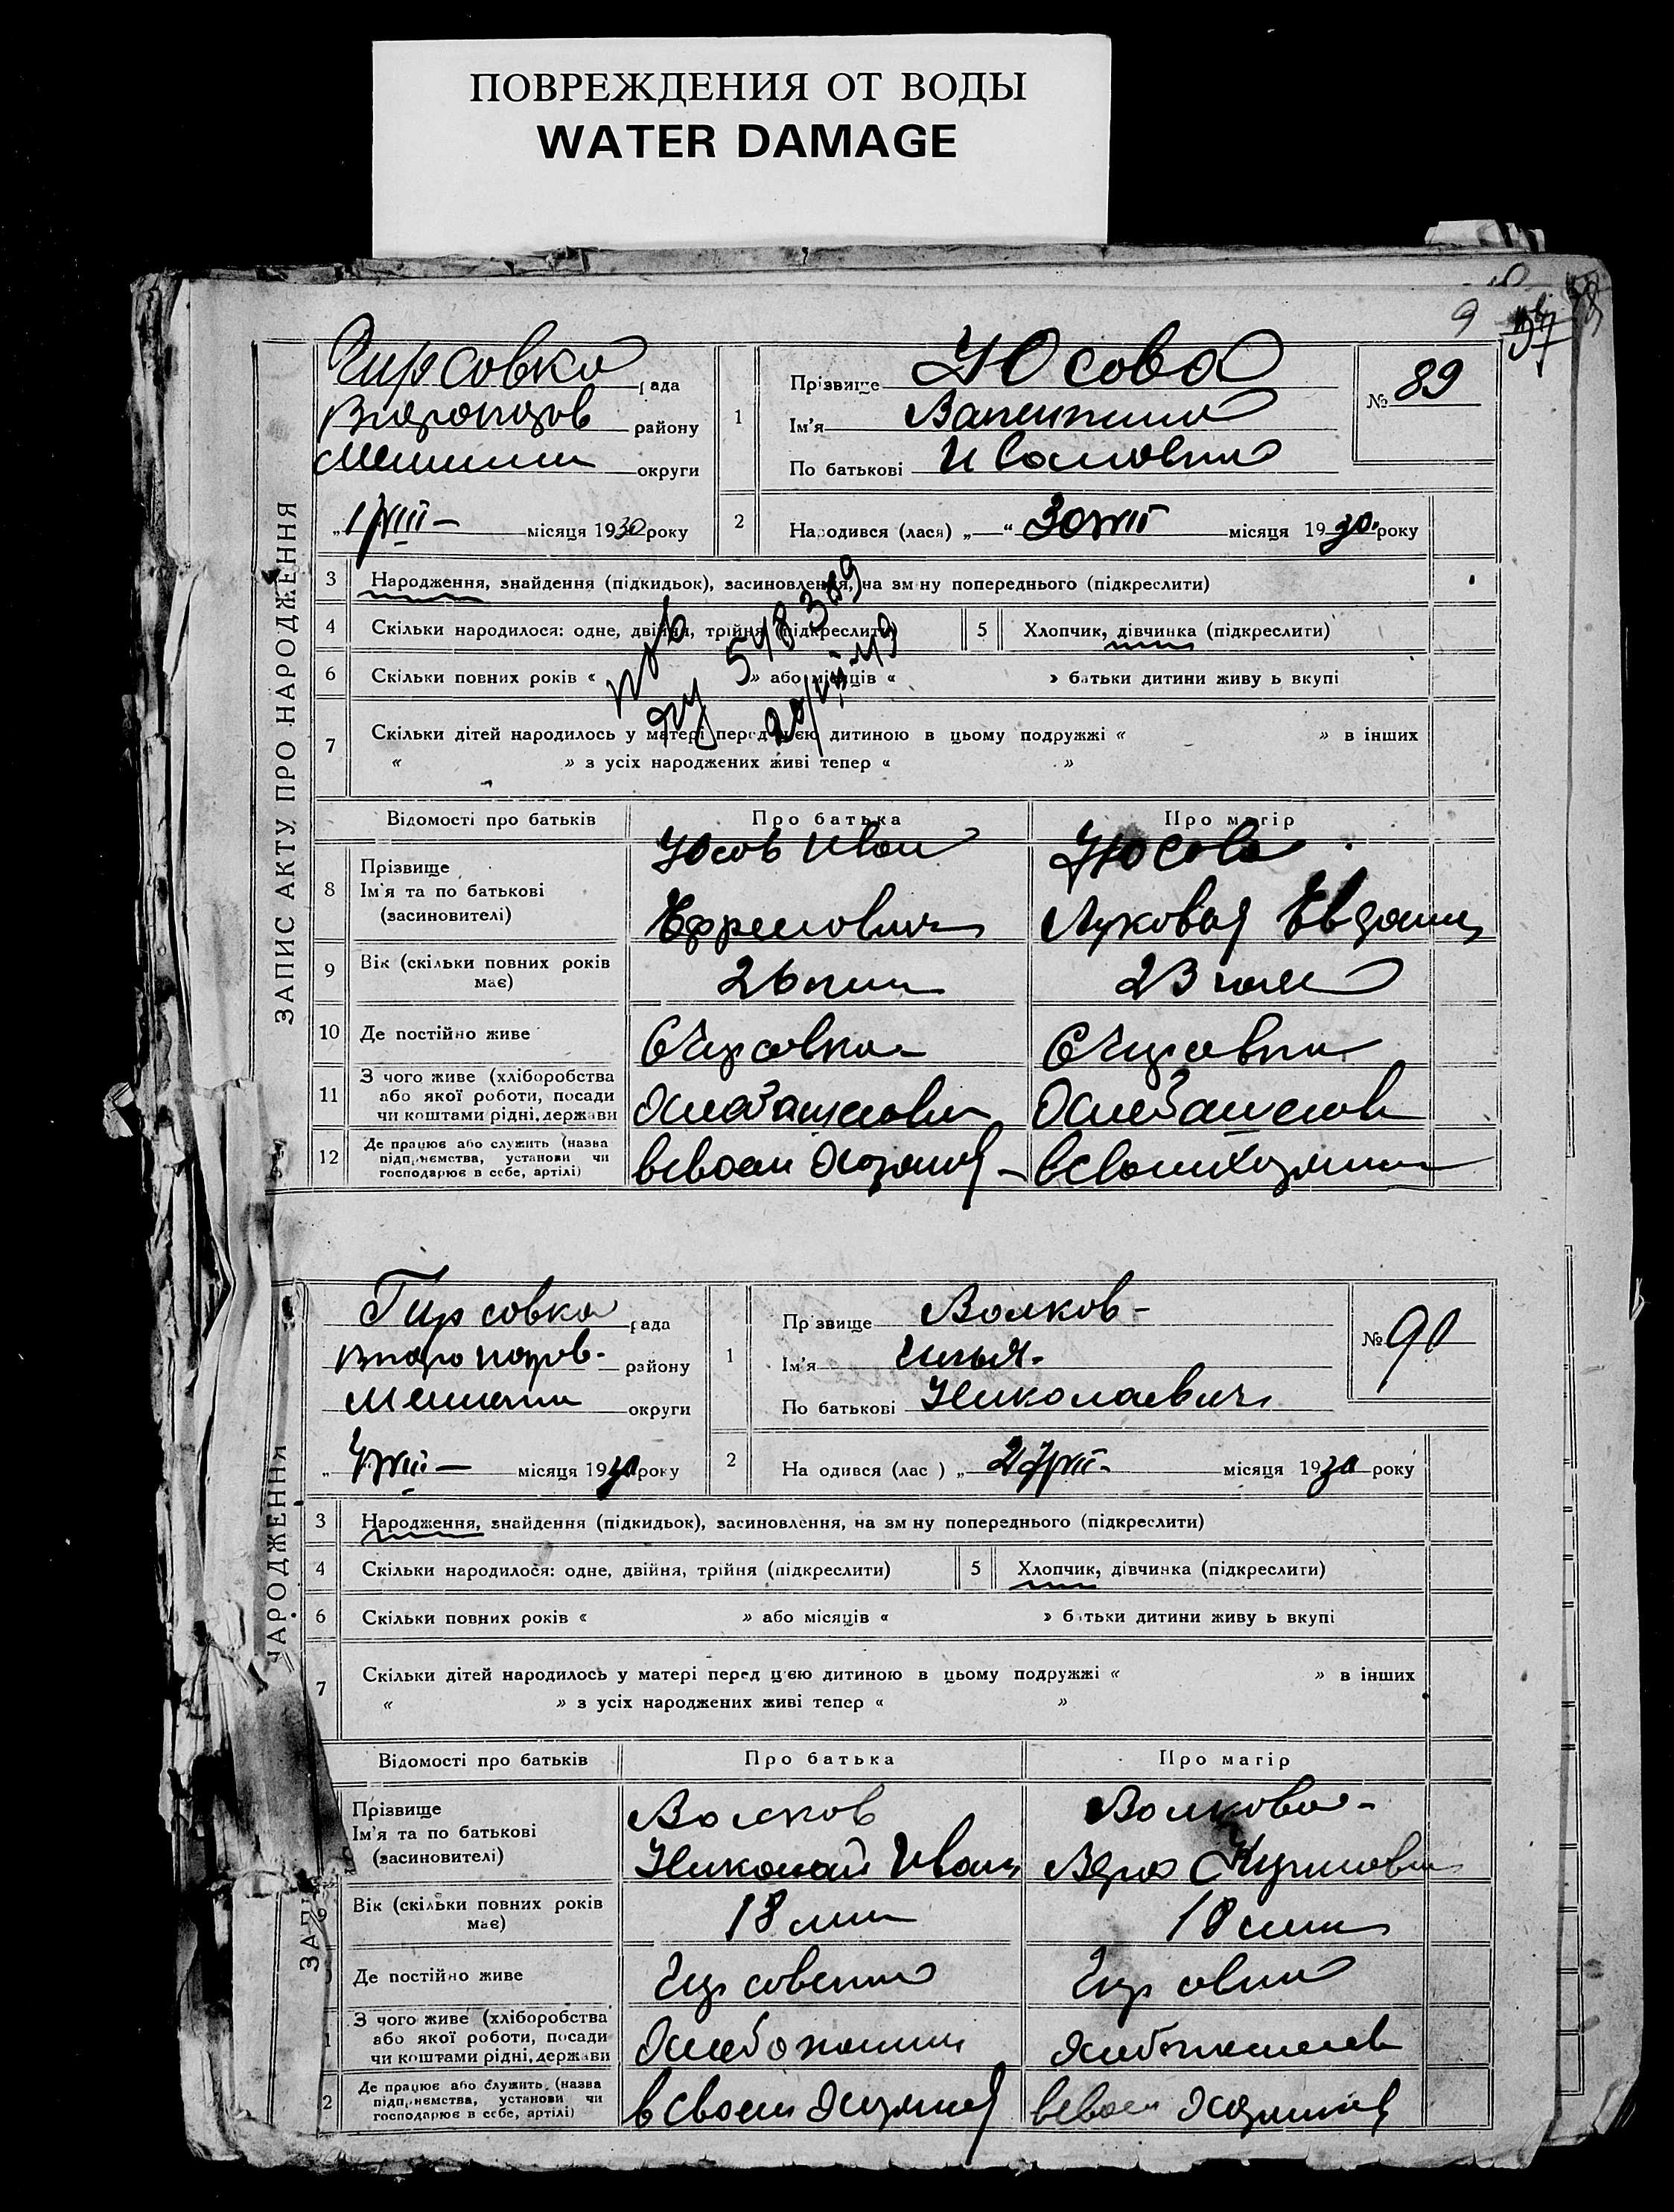 ПОВРЕЖДЕНИЯ ОТ ВОДЫ
WATER DAMAGE
9
ЗАПИС АКТУ ПРО НАРОДЖЕННЯ
Гирсовка рада
району
округи
1/VIII— місяця 1930 року
1
Прізвище Юсова
Ім'я Валентина
По батькові Ивановна
№ 89
2 Народився (лася) „—“ 30/VII місяця 1930 року
3 Народження, знайдення (підкидьок), засиновлення, на зм ну попереднього (підкреслити)
4 Скільки народилося: одне, двійня, трійня (підкреслити) 5 Хлопчик, дівчинка (підкреслити)
6 Скільки повних років « » або місяців « » батьки дитини живу ь вкупі
548389
7 Скільки дітей народилось у матері перед ц'єю дитиною в цьому подружжі « » в інших
« » з усіх народжених живі тепер « »
Відомості про батьків Про батька Про матір
8 Прізвище Ім'я та по батькові (засиновителі)
Юсов Иван Юсова
Ефремович Лукова Евдоки
9 Вік (скільки повних років має) 26 лет 23 года
10 Де постійно живе с Гирсовка с Гирсовка
11 З чого живе (хліборобства або якої роботи, посади чи коштами рідні, держави
12 Де працює або служить (назва підпр,ємства, установи чи господарює в себе, артілі) в своем хозяйс— в своем хозяйс
НАРОДЖЕННЯ
Гирсовка рада
району
округи
„ /VIII— місяця 1930 року
1
Пр звище Волков-
Ім'я Илья-
По батькові Николаевич
№ 90
2 На одився (лас ) „ 27/VII- місяця 1930 року
3 Народження, знайдення (підкидьок), засиновлення, на зм ну попереднього (підкреслити)
4 Скільки народилося: одне, двійня, трійня (підкреслити) 5 Хлопчик, дівчинка (підкреслити)
6 Скільки повних років « » або місяців « » б тьки дитини живу ь вкупі
7 Скільки дітей народилось у матері перед ц'єю дитиною в цьому подружжі « » в інших
« » з усіх народжених живі тепер « »
Відомості про батьків Про батька Про матір
Прізвище Ім'я та по батькові (засиновителі)
Волков Волкова-
Николай Иван Вера
9 Вік (скільки повних років має) 18 лет 18 лет
Де постійно живе
З чого живе (хліборобства або якої роботи, посади чи коштами рідні, держави
2 Де працює або служить (назва підпр,ємства, установи чи господарює в себе, артілі) в своем хозяйс в своем хозяйс
ЗАП